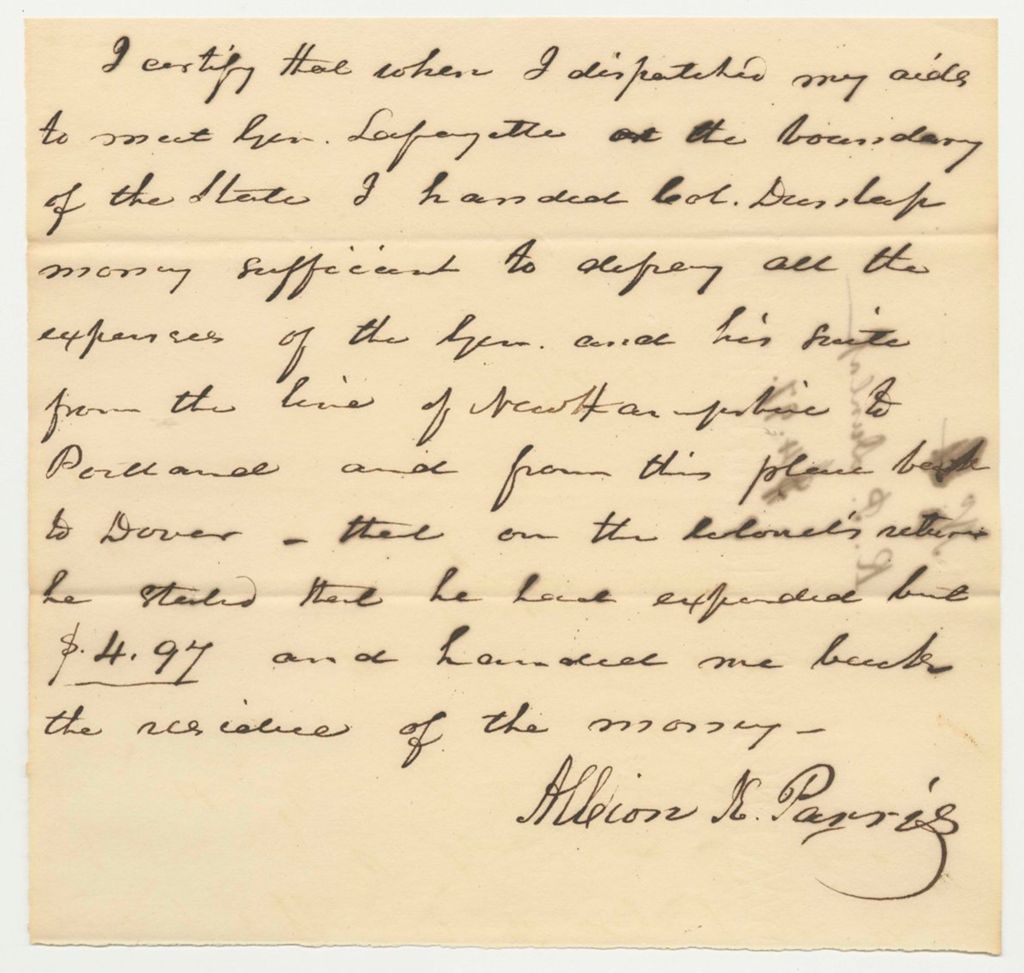 I certify that when I dispatched my aids
to meet Gen. Lafayette at the boundary
of the State I handed Col. Dunlap
money sufficient to defray all the
expenses of the Gen. and his suite
from the line of New Hampshire to
Portland and from this place back
to Dover - that on the Colonel's return
he stated that he had expended but
$.4.97 and handed me back
the residue of the money -
Albion K. Parris